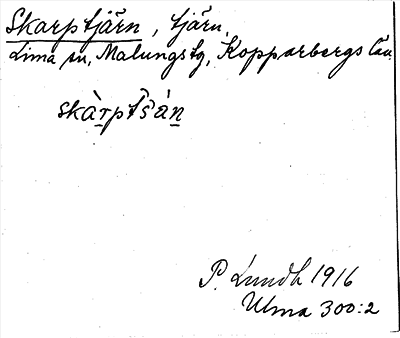 Skarptjärn, tjärn,
Lima sn, Malungs tg, Kopparbergs län.
skàr̲ptš̑àn̲
P. Lundh 1916
Ulma 300:2